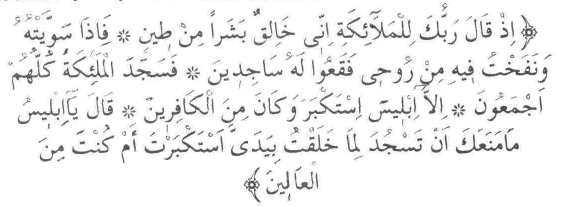 ﴿ اِذْ قَالَ رَبُّكَ لِلْمَلَآئِكَةِ اِنّٖى خَالِقٌ بَشَراً مِنْ طٖينٍ ❊ فَاِذَا سَوَّيْتُهُ
وَنَفَخْتُ فٖيهِ مِنْ رُوحٖى فَقَعُوا لَهُ سَاجِدٖينَ ❊ فَسَجَدَ الْمَلٰئِكَةُ كُلُّهُمْ
اَجْمَعُونَ ❊ اِلاَّ اِبْلٖيسَ اِسْتَكْبَرَ وَكَانَ مِنَ الْكَافِرٖينَ ❊ قَالَ يَآاِبْلٖيسُ
مَامَنَعَكَ اَنْ تَسْجُدَ لِمَا خَلَقْتُ بِيَدَىَّ اَسْتَكْبَرْتَ أَمْ كُنْتَ مِنَ
الْعَالٖينَ ﴾